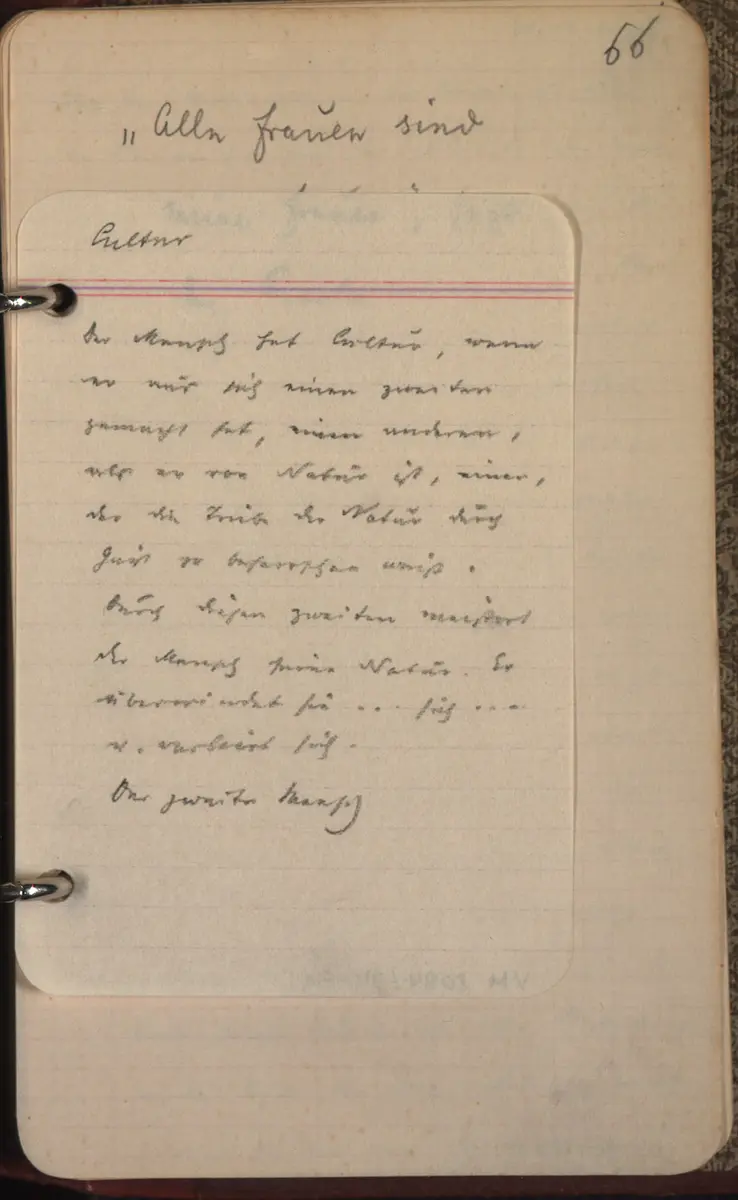 66
„Alle Frauen sind
Cultur
Der Mensch hat Cultur, wenn
er aus sich einen zweiten
gemacht hat, einen anderen,
als er von Natur ist, einer,
der die Triebe der Natur durch
Geist zu beherrschen weiß.
Durch diesen zweiten meistert
der Mensch seine Natur. Er
überwindet sie ... sich ...
u. verliert sich.
Der zweite Mensch